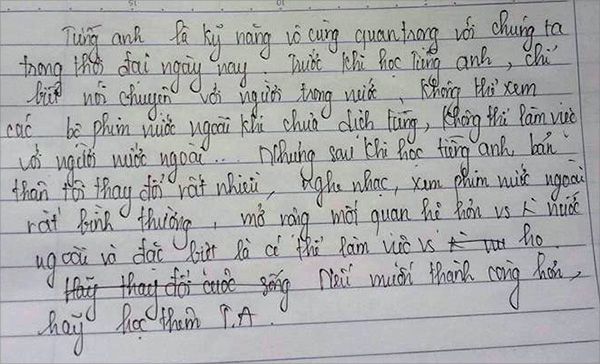 Tiếng anh là kỹ năng vô cùng quan trọng với chúng ta
trong thời đại ngày nay. Trước khi học tiếng anh, chỉ
biết nói chuyện với người trong nước, không thể xem
các bộ phim nước ngoài khi chưa dịch tiếng, không thể làm việc
với người nước ngoài... Nhưng sau khi học tiếng anh, bản
thân tôi thay đổi rất nhiều, nghe nhạc, xem phim nước ngoài
rất bình thường, mở rộng mối quan hệ hơn vs nước
ngoài và đặc biệt là có thể làm việc vs họ.
Hãy thay đổi cuộc sống Nếu muốn thành công hơn,
hãy học thêm T.A.